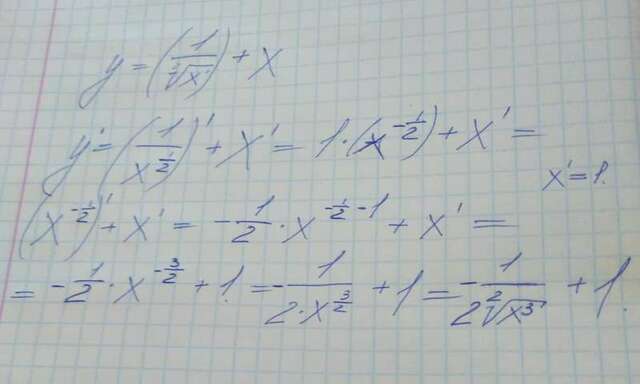 y = (1/²√x) + x
y' = (1/x^(1/2))' + x' = 1·(x^(-1/2)) + x' =
x' = 1.
(x^(-1/2))' + x' = -1/2 · x^(-1/2 - 1) + x' =
= -1/2 · x^(-3/2) + 1 = -1/(2·x^(3/2)) + 1 = -1/(2 ²√x³) + 1.